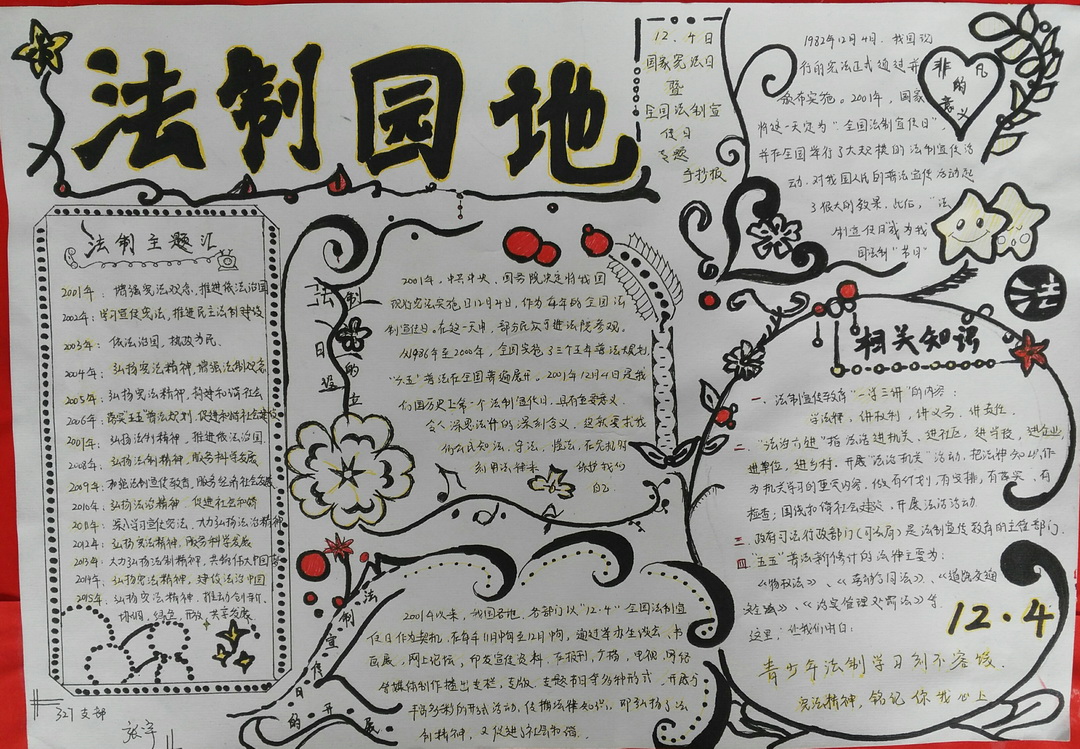 法制园地
12.4日
国家宪法日
暨
全国法制宣
传日
专题
手抄报
非凡
的
意义
1982年12月4日，我国现
行的宪法正式通过并
颁布实施。2001年，国家
将这一天定为"全国法制宣传日"，
并在全国举行了大规模的法制宣传活
动，对我国人民的普法宣传活动起
了很大的效果，此后，"法
制宣传日"成为我
国法制"节日"
法制主题汇
2001年：增强宪法观念，推进依法治国
2002年：学习宣传宪法，推进民主法制建设
2003年：依法治国，执政为民。
2004年：弘扬宪法精神，增强法制观念
2005年：弘扬宪法精神，构建和谐社会
2006年：落实五五普法规划，促进和谐社会建设
2007年：弘扬法制精神，推进依法治国
2008年：弘扬法制精神，服务科学发展
2009年：加强法制宣传教育，服务经济社会发展
2010年：弘扬法治精神，促进社会和谐
2011年：深入学习宣传宪法，大力弘扬法治精神
2012年：弘扬宪法精神，服务科学发展
2013年：大力弘扬法制精神，共筑伟大中国梦
2014年：弘扬宪法精神，建设法治中国
2015年：弘扬宪法精神，推动创新、
协调、绿色、开放、共享发展
327支部
张宇
法制
日的
设立
2001年，中共中央、国务院决定将我国
现行宪法实施日12月4日，作为每年的全国法
制宣传日。在这一天中，部分民众可进法院参观。
从1986年至2000年，全国实施了三个五年普法规划
"四五"普法在全国普遍展开。2001年12月4日是我
们国历史上第一个法制宣传日，具有重要意义。
令人深思法律的深刻含义，这就要求我
们公民知法、守法、懂法，在危机时
利用法律来保护我们
自己
法制宣传日的开展
2001年以来，我国各地、各部门以"12·4"全国法制宣
传日作为契机，在每年11月中旬至12月中旬，通过举办生晚会、书
画展，网上论坛，印发宣传资料，在报刊、广播，电视、网络
等媒体制作播出专栏，专版、专题节目等多种形式，开展了
丰富多彩的形式活动，传播法律知识，即弘扬了法
制精神，又促进了社会和谐。
法
相关知识
一、法制宣传教育"一学三讲"的内容：
学法律，讲权利，讲义务，讲责任。
二、"法治六进"指法治进机关、进社区，进学校，进企业，
进单位，进乡村。开展"法治机关"活动，把法律知识作
为机关学习的重要内容，做有计划，有安排，有落实、有
检查；围绕和谐社会建设，开展法治活动
三、政府司法行政部门（司法局）是法制宣传教育的主管部门
四、"五五"普法新修订的法律主要为：
《物权法》、《劳动合同法》、《道路交通
安全法》、《治安管理处罚法》等
这里，让我们明白：
12·4
青少年法制学习刻不容缓
宪法精神，铭记你我心上